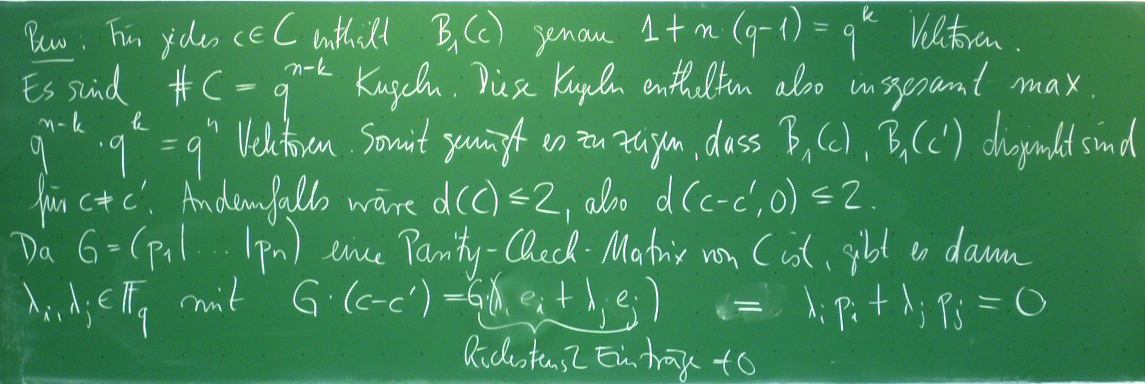 Bew: Für jedes c∈C enthält B₁(c) genau 1+n·(q-1) = q^k Vektoren.
Es sind #C = q^{n-k} Kugeln. Diese Kugeln enthalten also insgesamt max.
q^{n-k}·q^k = q^n Vektoren. Somit genügt es zu zeigen, dass B₁(c), B₁(c') disjunkt sind
für c≠c'. Andernfalls wäre d(C)≤2, also d(c-c',0)≤2.
Da G=(p₁|...|pₙ) eine Parity-Check-Matrix von C ist, gibt es dann
λᵢ,λⱼ∈𝔽_q mit G·(c-c') = G(λᵢeᵢ+λⱼeⱼ) = λᵢpᵢ+λⱼpⱼ=0
höchstens 2 Einträge ≠0